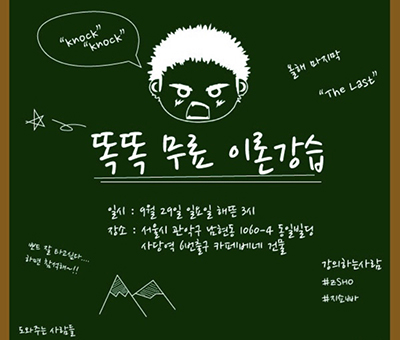 "knock"
"knock"
올해 마지막
"The Last"
똑똑 무료 이론강습
일시 : 9월 29일 일요일 해뜬 3시
장소 : 서울시 관악구 남현동 1060-4 동일빌딩
사당역 6번출구 카페베네 건물
보드 잘 타고싶다....
하면 참석해~!!
강의하는사람
#ZSHO
#지쇼빠
도와주는 사람들